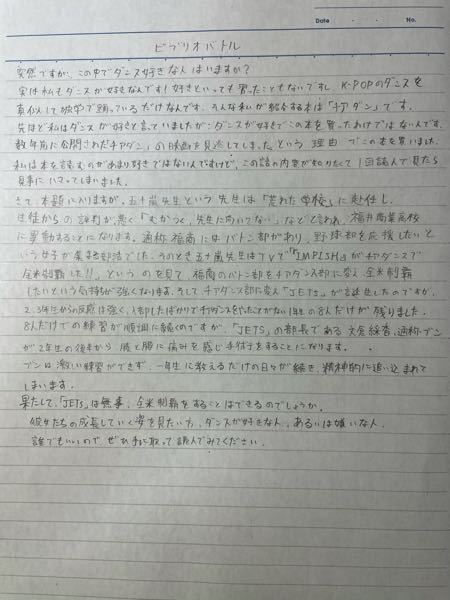 Date
No.
ビブリオバトル
突然ですが、この中でダンス好きな人はいますか?
実は私もダンスが好きなんです!好きといっても習ったこともないですし、K-POPのダンスを
真似して独学で踊っているだけなんです。そんな私が紹介する本は「チアダン」です。
先ほど私はダンスが好きと言っていましたが、ダンスが好きでこの本を買ったわけではないんです。
数年前に公開されたチアダン」の映画を見逃してしまったという理由でこの本を買いました。
私は本を読むのがあまり好きではないんですけど、この話の内容が知りたくて1回読んで見たら
見事にハマってしまいました。
さて、本題に入りますが、五十嵐先生という先生は「荒れた学校」に赴任し、
生徒からの評判が悪く「むかつく、先生に向いてない」などと言われ、福井商業高校
に異動することになります。通称福商にはバトン部があり、野球部を応援したいと
いう女子が集まる部活でした。そのとき五十嵐先生はTVで「IMPISH」がチアダンスで
全米制覇した!!、というのを見て、福商のバトン部をチアダンス部に変え、全米制覇
したいという気持ちが強くなります。そしてチアダンス部に変え「JETS」が誕生したのですが、
2.3年生から反感は強く、入部したばかりでチアダンスをやったことがない1年生の8人だけが残りました。
8人だけでの練習が順調に続くのですが、「JETS」の部長である 、通称ブン
が2年生の後半から腰と膝に痛みを感じ手術をすることになります。
ブンは激しい練習ができず、一年生に教えるだけの日々が続き、精神的に追い込まれて
しまいます。
果たして、「JETS」は無事、全米制覇をすることはできるのでしょうか。
彼女たちの成長していく姿を見たい方、ダンスが好きな人、あるいは嫌いな人、
誰でもいいので、ぜひ手に取って読んでみてください。